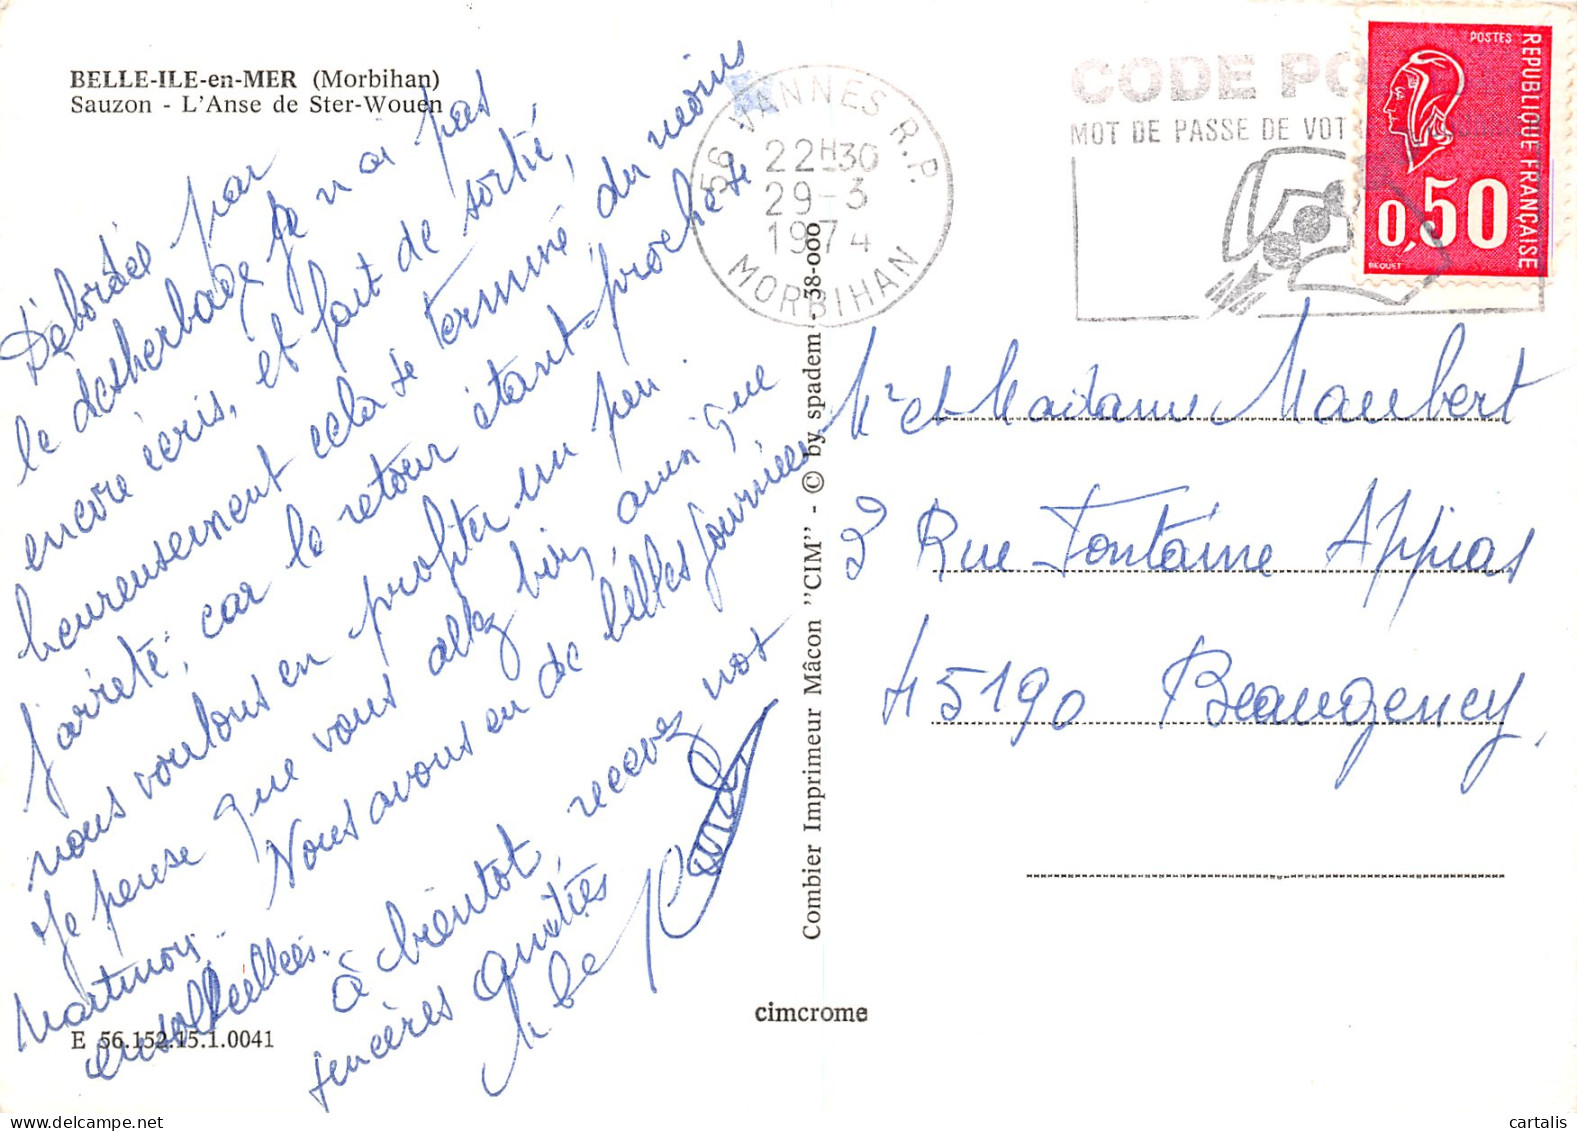 BELLE-ILE-en-MER (Morbihan)
Sauzon - L'Anse de Ster-Wouen
Débordée par
le desherbage je n'ai pas
encore écris, et fait de sortie,
heureusement cela se termine, du moins
j'arrête, car le retour étant proche
nous voulons en profiter un peu.
Je pense que vous allez bien, ainsi que
Martinoir. Nous avons eu de belles journées
ensolleillées.
à bientôt, recevez nos
sencères amitiés
56 VANNES R.P.
22H30
29-3
1974
MORBIHAN
CODE PO
MOT DE PASSE DE VOT
POSTES
REPUBLIQUE FRANÇAISE
0,50
BEQUET
Mr et Madame Maubert
3 Rue Fontaine Appias
45190 Beaugency,
Combier Imprimeur Mâcon "CIM" - © by spadem - 38-000
cimcrome
E 56.152.15.1.0041
cartalis.com